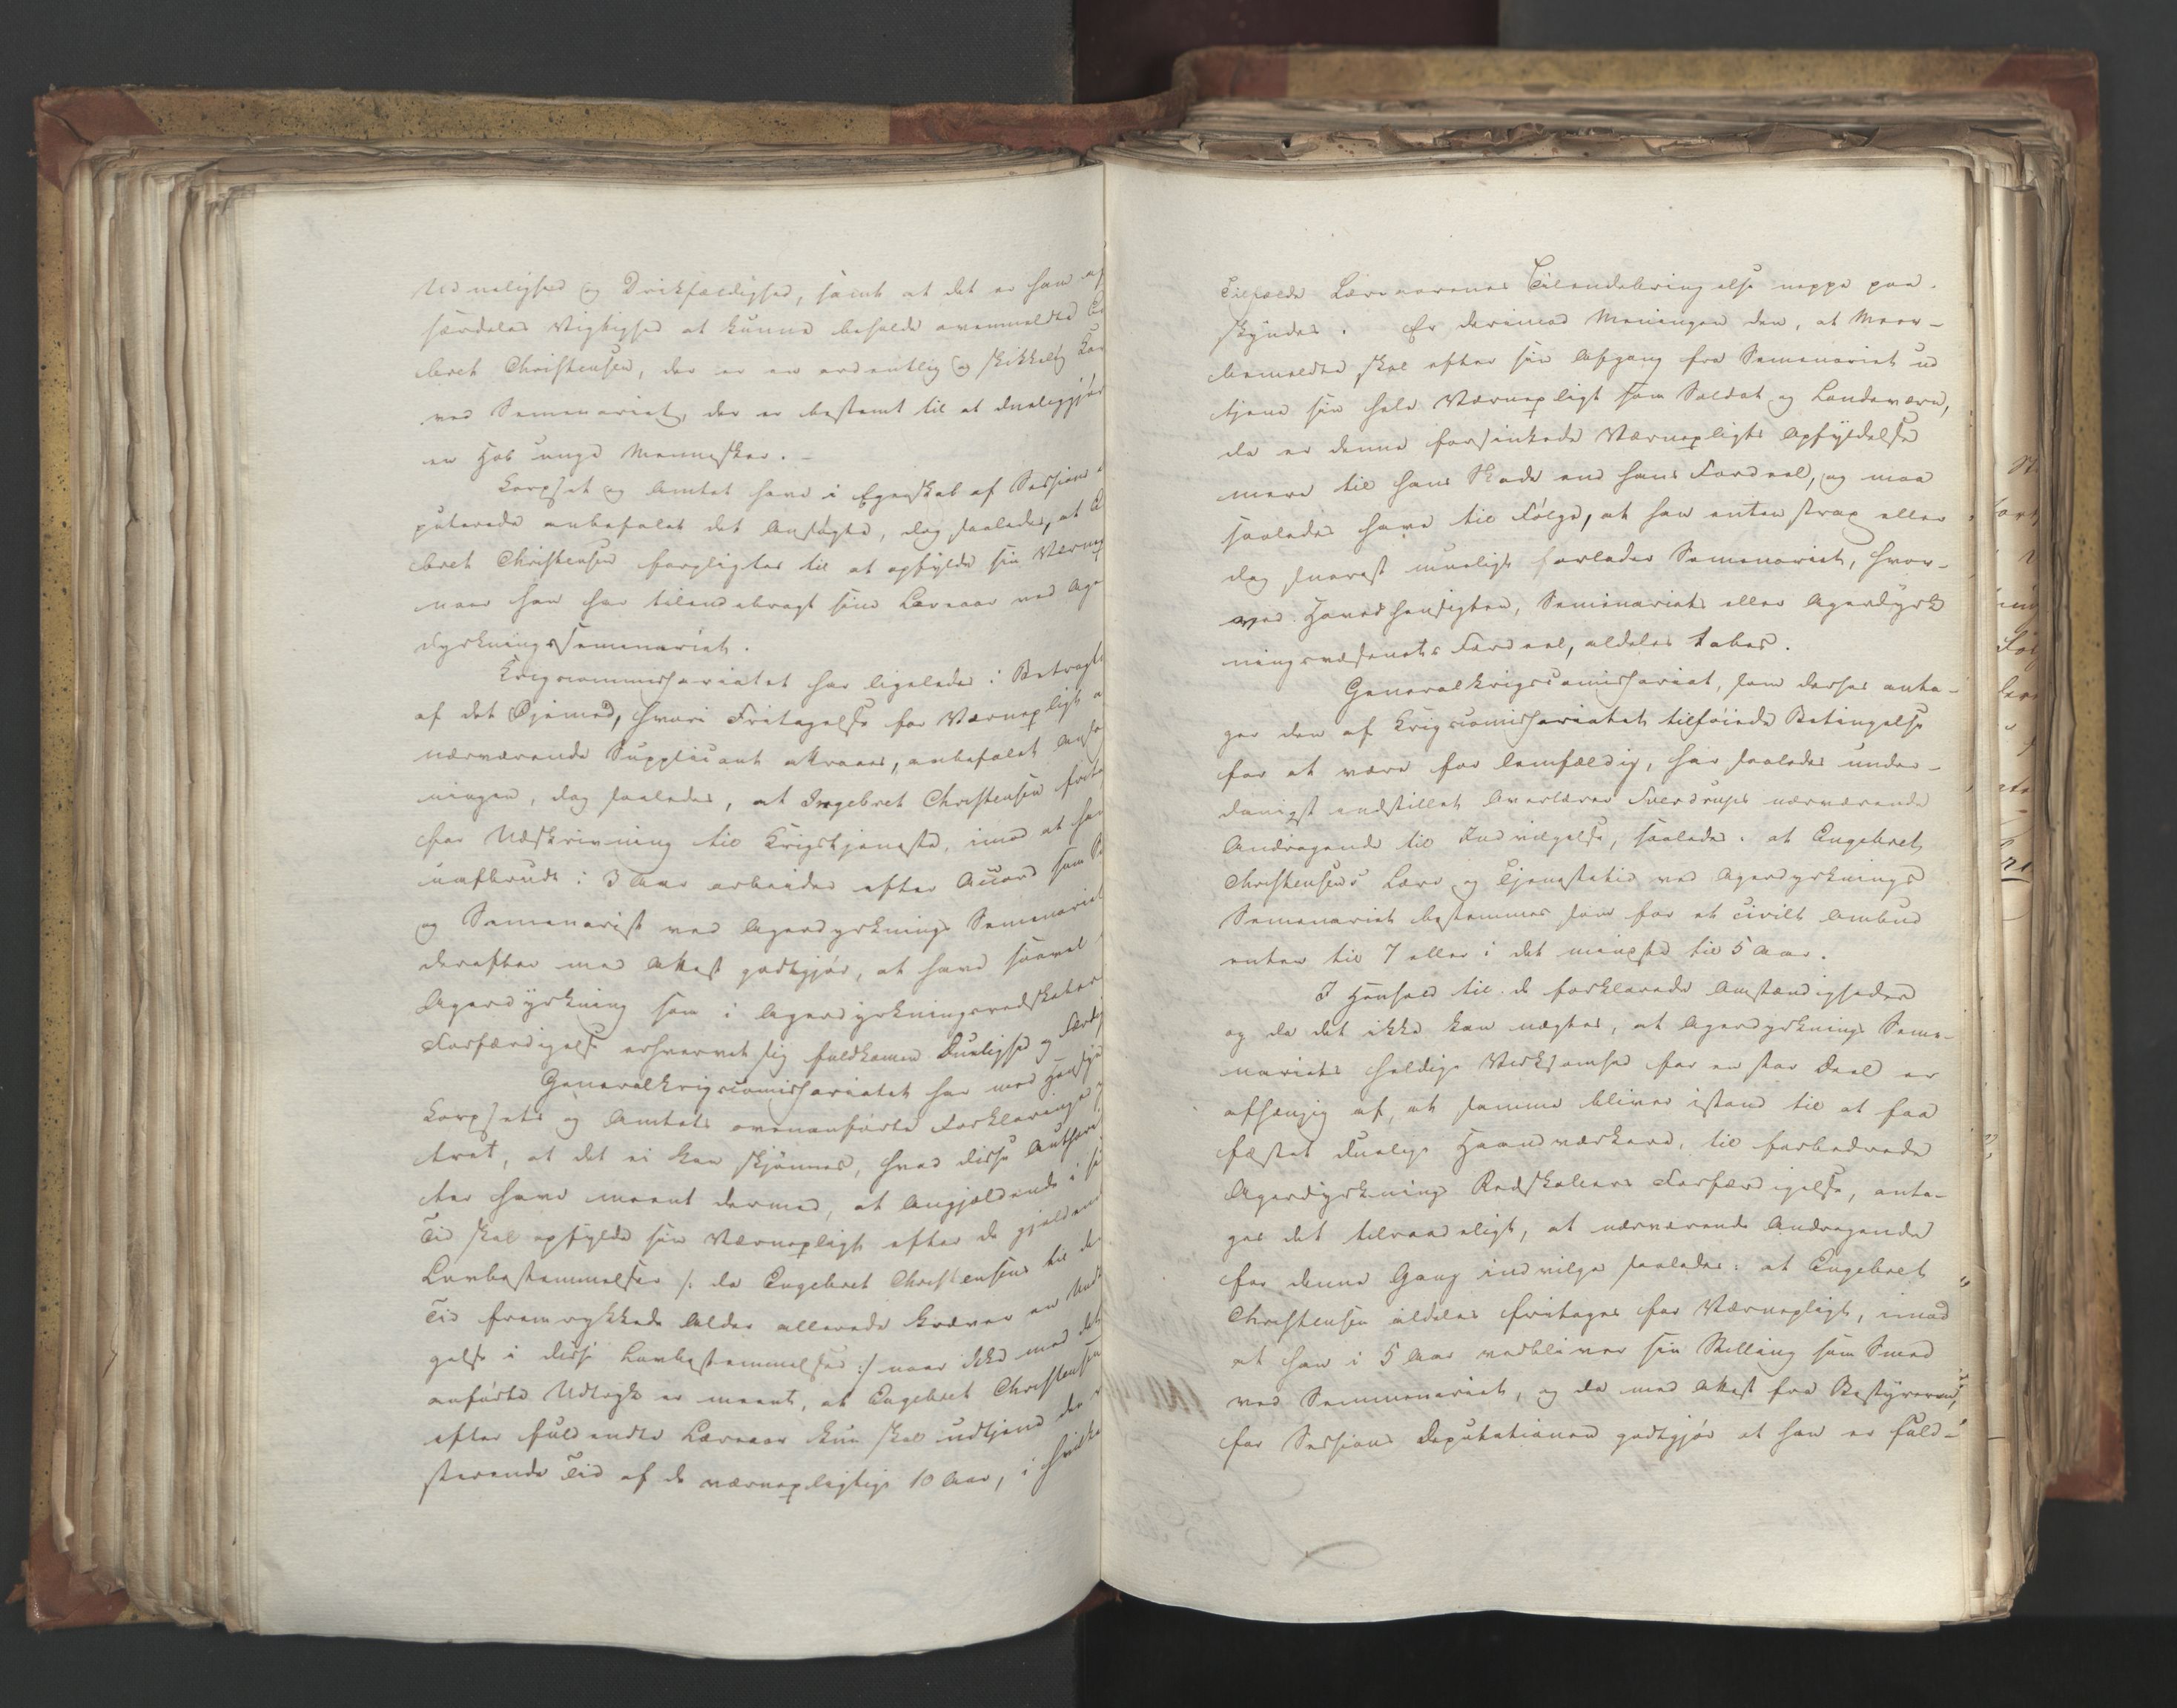 Uduelighed og Drikfældighed, samt at det er ham af
særdeles Vigtighed at kunne beholde ovenmeldte En
bret Christensen, der er en ordentlig og skikkelig Kar
ved Semenariet, der er bestemt til at dueliggjør
en Hob unge Mennesker. –
Korpset og Amtet have i Egenskab af Sessions
puterede anbefalet det Ansøgte, dog saaledes, at E
bret Christensen forpligtes til at opfylde sin Værnep
naar han har tilendebragt sine Læreaar ved Age
dyrkningssemenariet.
Krigscommissariatet har ligeledes i Betragt
af det Øjemed, hvori Fritagelse for Værnepligt
nærværende Supplicant attraaes, anbefalet Ansø
ningen, dog saaledes, at Ingebret Christensen frit
for Udskrivning til Krigstjeneste, imod at han
uafbrudt i 3 Aar arbeider efter Accord som S
og Semenarist ved Agerdyrknings Semenariet
derefter med Attest godtgjør, at have saavel
Agerdyrkning som i Agerdyrkningsredskaber
Forfærdigelse erhvervet sig fuldkommen Duelighed og Færdig
Generalkrigscomissariatet har med Hensyn
Korpsets og Amtets ovenanførte Forklaringer
tret, at det ei kan skjønnes, hvad disse Authori
ter have meent dermed, at Angjældende i sin
Tid skal opfylde sin Værnepligt efter de gjælden
Lovbestemmelser /: da Engebret Christensens til den
Tid fremrykkede Alder allerede kræver en Und
gelse i disse Lovbestemmelser :/ naar ikke med det
anførte Udtryk er meent, at Engebret Christensen
efter fuldendte Læreaar kun skal udtjene den
sterende Tid af de værnepligtige 10 Aar, i hvilke
Tilfælde Læreaarenes Tilendebringelse neppe paa-
skyndes. Er derimod Meningen den, at Meer-
bemeldte skal efter sin Afgang fra Semenariet ud
tjene sin hele Værnepligt som Soldat og Landeværn,
da er denne forsinkede Værnepligts Opfyldelse
mere til hans Skade end hans Fordeel, og maa
saaledes have til Følge, at han enten strax eller
dog snarest mueligt forlader Semenariet, hvor-
ved Hovedhensigten, Seminariets eller Agerdyrk
ningsvæsenets Fordeel, aldeles tabes.
Generalkrigscomissariat, som derhos anta-
ger den af Krigscomissariatet tilføiede Betingelse
for at være for lemfældig, har saaledes under-
danigst indstillet Overlærer Sverdrups nærværende
Andragende til Indvilgelse, saaledes: at Engebret
Christensens Lære og Tjenestetid ved Agerdyrknings
Semenariet bestemmes som for et civilt Ombud
enten til 7 eller i det mindste til 5 Aar.
I Henhold til de forklarede Omstændigheder
og da det ikke kan nægtes, at Agerdyrknings Seme-
nariets heldige Virksomhed for en stor Deel er
afhængig af, at samme bliver istand til at faa
fæstet duelige Haandværkere, til forbedrede
Agerdyrknings Redskabers Forfærdigelse, anta-
ges det tilraadeligt, at nærværende Andragende
for denne Gang indvilges saaledes: at Engebret
Christensen aldeles fritages for Værnepligt, imod
at han i 5 Aar vedbliver sin Stilling som Smed
ved Semmenariet, og da med Attest fra Bestyreren,
for Sessions Deputationen godtgjør at han er fuld-